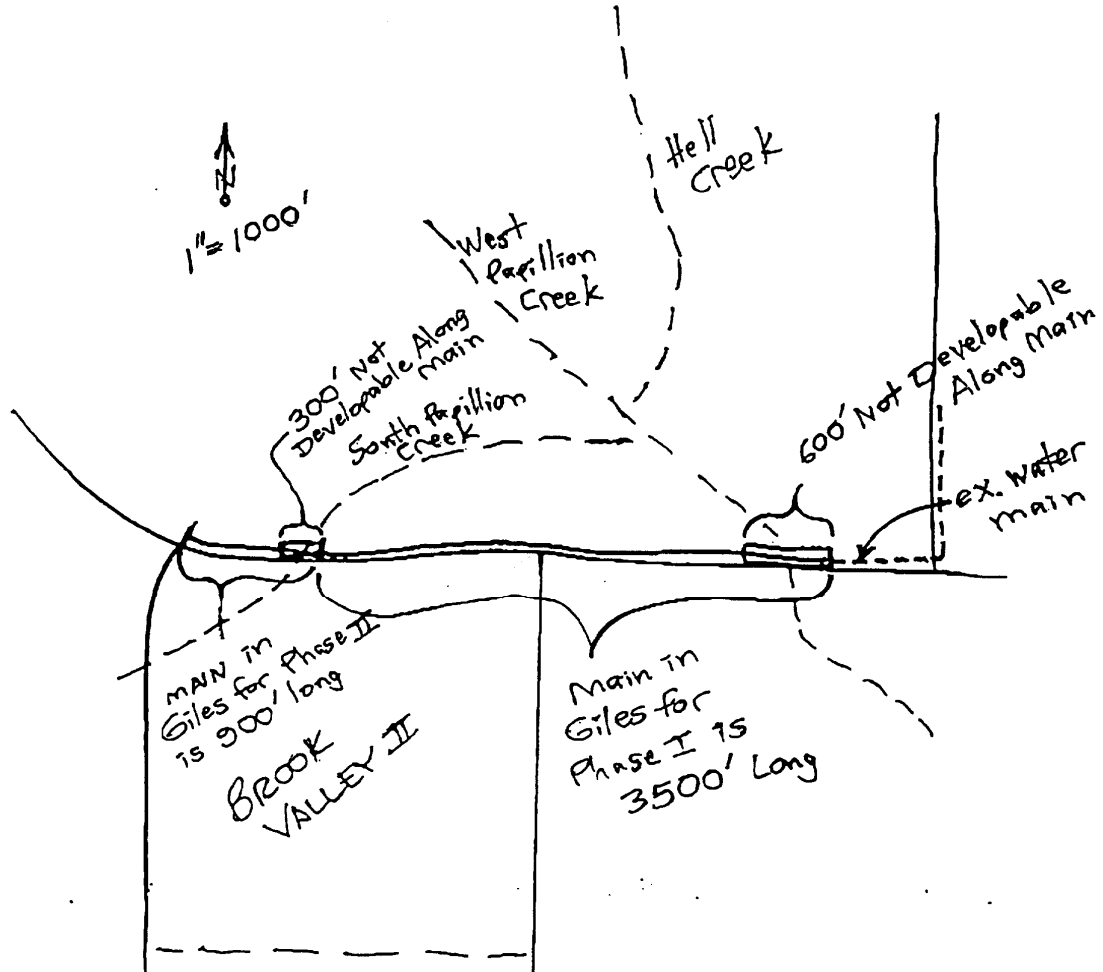 N
1"=1000'
Hell
Creek
West
Papillion
Creek
300' Not
Developable Along
main
South Papillion
Creek
600' Not Developable
Along Main
ex. water
main
MAIN in
Giles for Phase II
is 900' long
BROOK
VALLEY II
Main in
Giles for
Phase I is
3500' Long